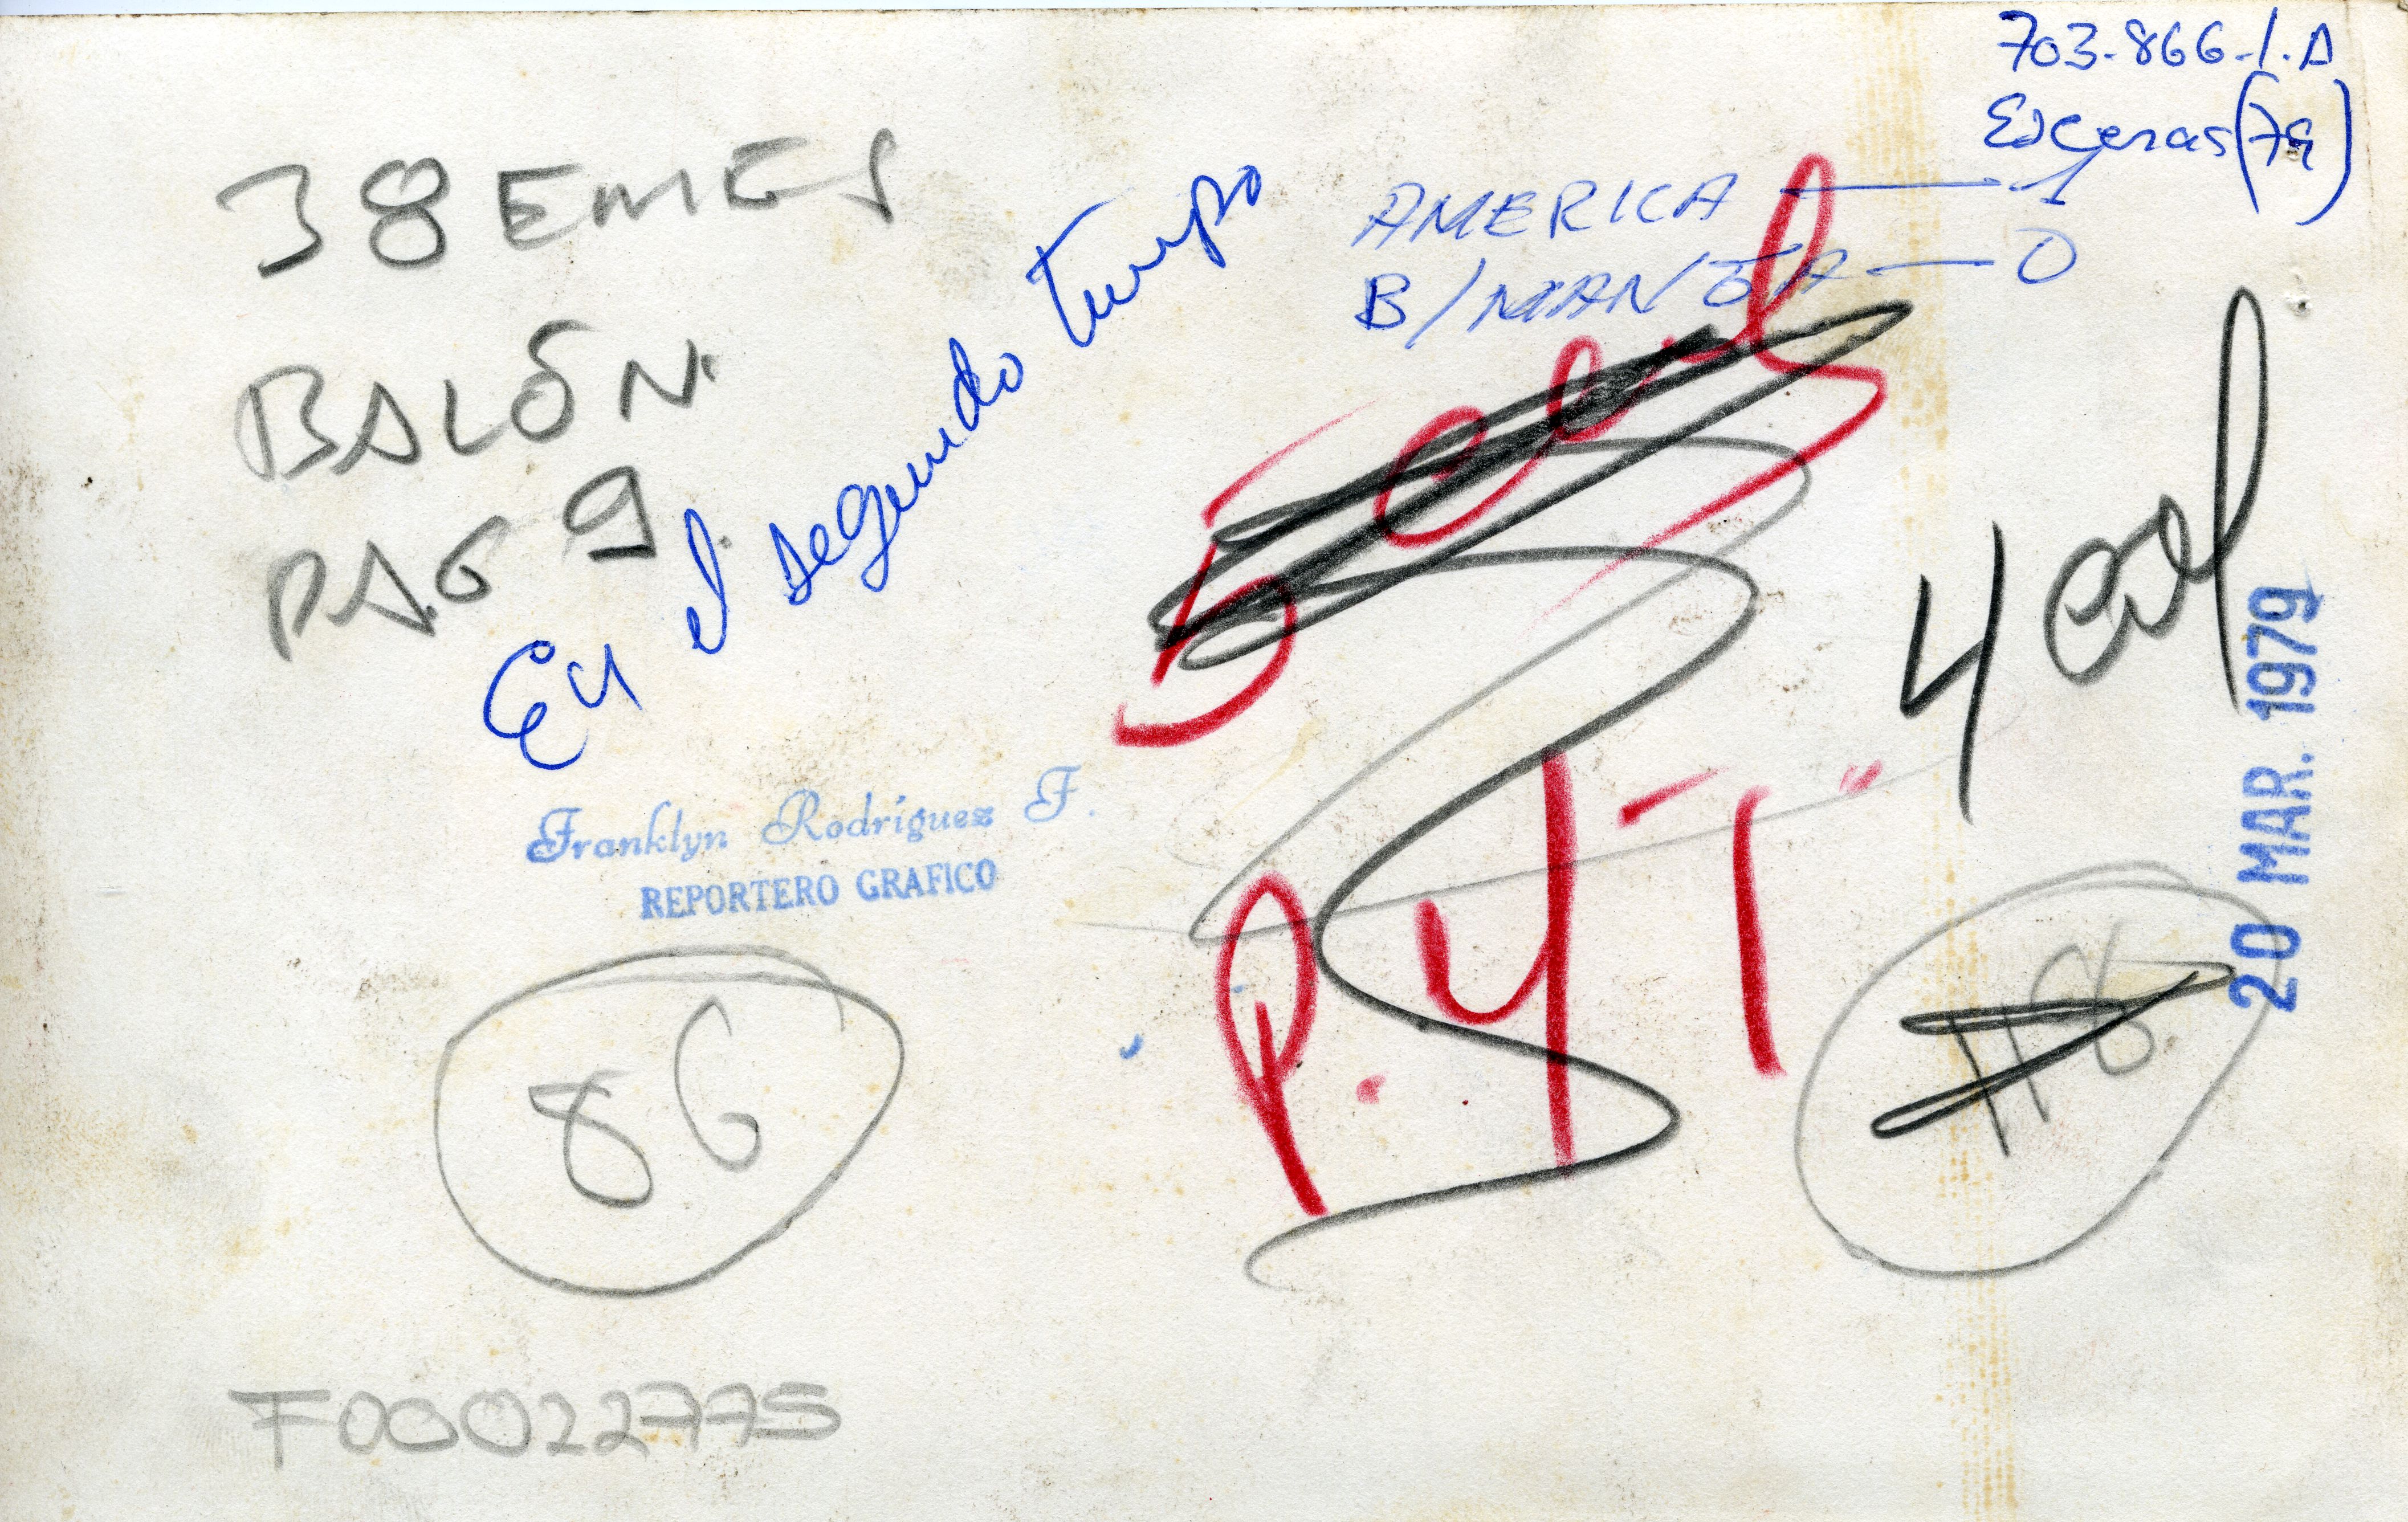 703-866-1.A
Escenas (79)
AMERICA — 1
B/MANGA — 0
38 EMES
BALÓN.
PAG 9
En el segundo tiempo
5 col
4 col
20 MAR. 1979
Franklyn Rodríguez F.
REPORTERO GRAFICO
P. 4-1"
86
F00022775